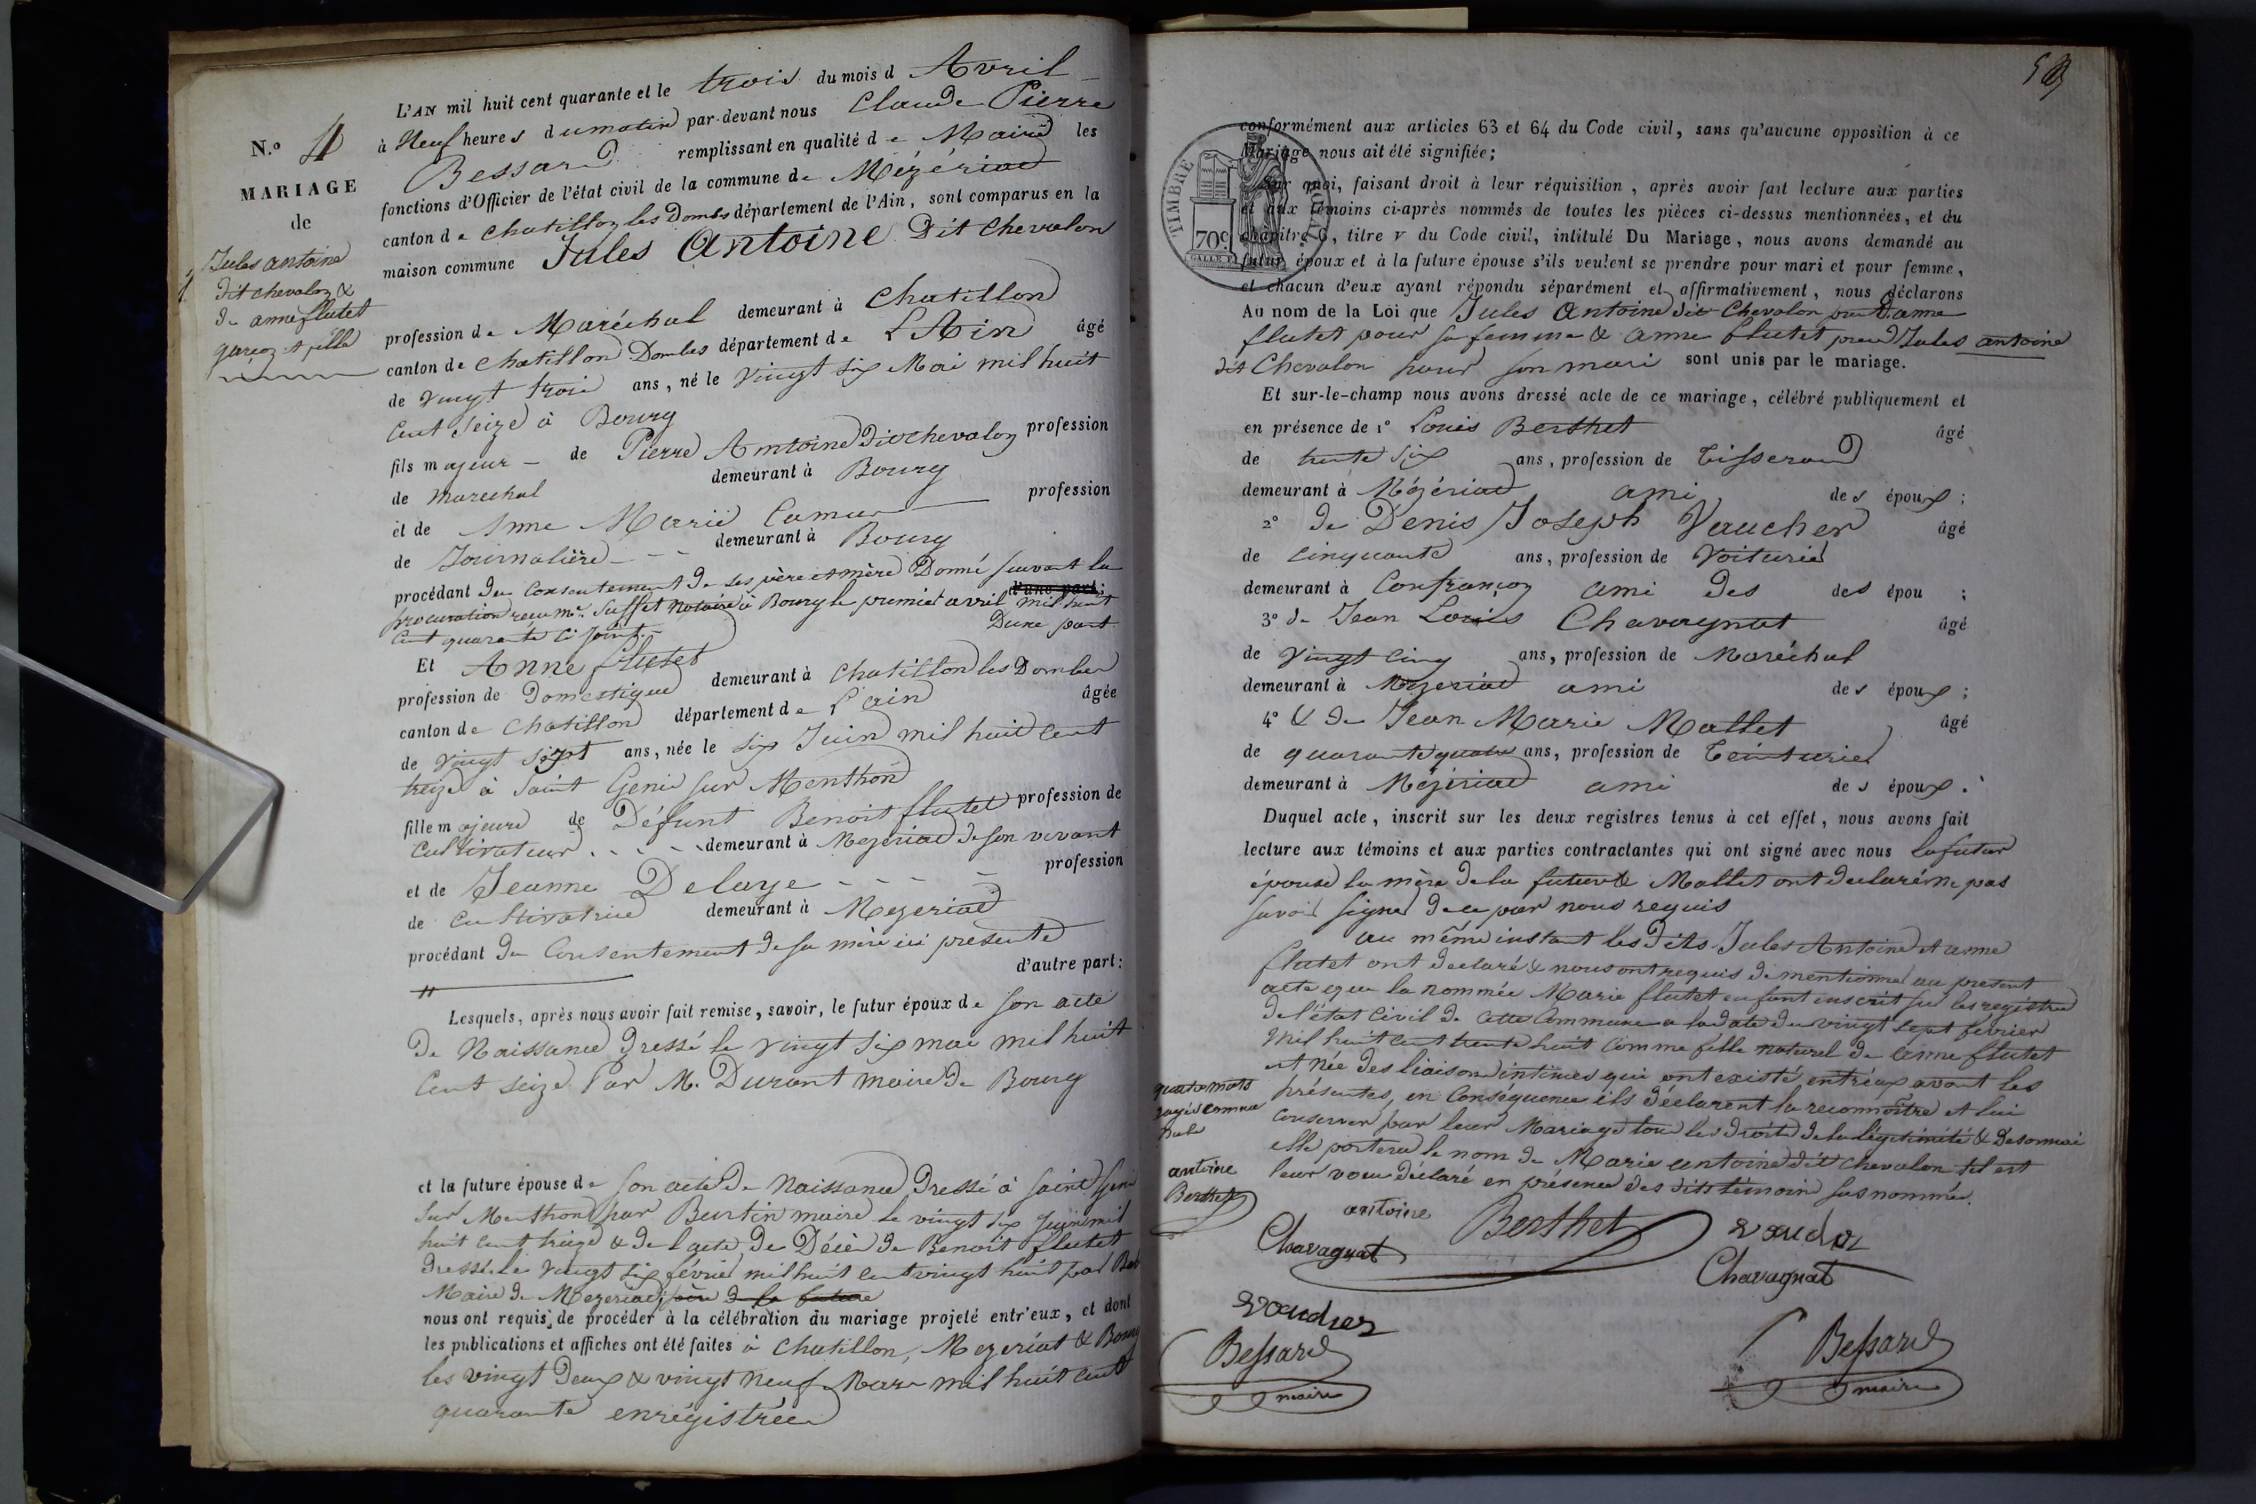 N.º 4
MARIAGE
de
Jules antoine
dit chevalon &
de anne flutet
garçon et fille
L'AN mil huit cent quarante et le trois du mois d Avril
à Neuf heures du matin par-devant nous Claude Pierre
Bessard remplissant en qualité de Maire les
fonctions d'Officier de l'état civil de la commune de Mézériat
canton de chatillon les Dombes département de l'Ain, sont comparus en la
maison commune Jules Antoine Dit chevalon
profession de Maréchal demeurant à Chatillon
canton de chatillon Dombes département de L'Ain âgé
de vingt trois ans, né le vingt six Mai mil huit
cent seize à Bourg
fils majeur de Pierre Antoine Dit chevalon profession
de marechal demeurant à Bourg
et de Anne Marie Camus profession
de Journalière demeurant à Bourg
procédant du consentement de ses père et mère Donné suivant la
d'une part;
procuration recu me. Suffet notaire à Bourg le premier avril mil huit
cent quarante ci jointe Dune part
Et Anne flutet
profession de Domestique demeurant à chatillon les Dombes
canton de chatillon département de L'ain âgée
de vingt sept ans, née le six Juin mil huit cent
treize à Saint Genis sur Menthon
fille majeure de Défunt Benoit flutet profession de
cultivateur demeurant à Mezeriat de son vivant
et de Jeanne Delaye profession
de cultivatrice demeurant à Mezeriat
procédant du consentement de sa mère ici presente
d'autre part:
Lesquels, après nous avoir fait remise, savoir, le futur époux de son acte
De Naissance dressé le vingt six mai mil huit
cent seize Par M. Durant maire de Bourg
et la future épouse de son acte de naissance Dressé à Saint Genis
sur Menthon par Burtin maire le vingt six Juin mil
huit cent treize & de l'acte de Décès de Benoit flutet
dressé le vingt six février mil huit cent vingt huit par
Maire de Mezeriat père de la future
nous ont requis de procéder à la célébration du mariage projeté entr'eux, et dont
les publications et affiches ont été faites à chatillon, Mezeriat & Bourg
les vingt deux & vingt neuf Mars mil huit cent
quarante enrégistrées
conformément aux articles 63 et 64 du Code civil, sans qu'aucune opposition à ce
Mariage nous ait été signifiée;
Sur quoi, faisant droit à leur réquisition, après avoir fait lecture aux parties
et aux témoins ci-après nommés de toutes les pièces ci-dessus mentionnées, et du
chapitre 6, titre v du Code civil, intitulé Du Mariage, nous avons demandé au
futur époux et à la future épouse s'ils veulent se prendre pour mari et pour femme,
et chacun d'eux ayant répondu séparément et affirmativement, nous déclarons
TIMBRE ROYAL
70c
Au nom de la Loi que Jules Antoine dit Chevalon prend anne
flutet pour sa femme & anne flutet prend Jules antoine
dit Chevalon pour son mari sont unis par le mariage.
Et sur-le-champ nous avons dressé acte de ce mariage, célébré publiquement et
en présence de 1º Louis Berthet âgé
de trente six ans, profession de Tisserand
demeurant à Mézériat ami des époux;
2º de Denis Joseph Vaucher âgé
de cinquante ans, profession de Voiturier
demeurant à Confrançon ami des des épou ;
3º de Jean Louis Chavagnat âgé
de vingt cinq ans, profession de Maréchal
demeurant à Mezeriat ami des époux;
4º & de Jean Marie Mallet âgé
de quarante quatre ans, profession de Teinturier
demeurant à Mézériat ami des époux.
Duquel acte, inscrit sur les deux registres tenus à cet effet, nous avons fait
lecture aux témoins et aux parties contractantes qui ont signé avec nous la futur
épouse la mère de la future & Mallet ont declaré ne pas
savoir signer de ce par nous requis
au même instant les dits Jules Antoine et anne
flutet ont declaré & nous ont requis de mentionner au present
acte que la nommée Marie flutet enfant inscrit sur les registres
de l'état civil de cette Commune a la date du vingt sept fevrier
mil huit cent trente huit comme fille naturel de anne flutet
est née des liaisons intimes qui ont existé entr'eux avant les
présentes, en conséquence ils déclarent la reconnoître et lui
conserver par leur Mariage tous les droits de la légitimité & desormais
elle portera le nom de Marie antoine dit chevalon tel est
leur voeu déclaré en présence des dits témoins sus nommés.
quatre mots
rayés comme
nuls
antoine
Berthet
antoine Berthet
Chavagnat
Chavagnat
Bessard
maire
Bessard
maire